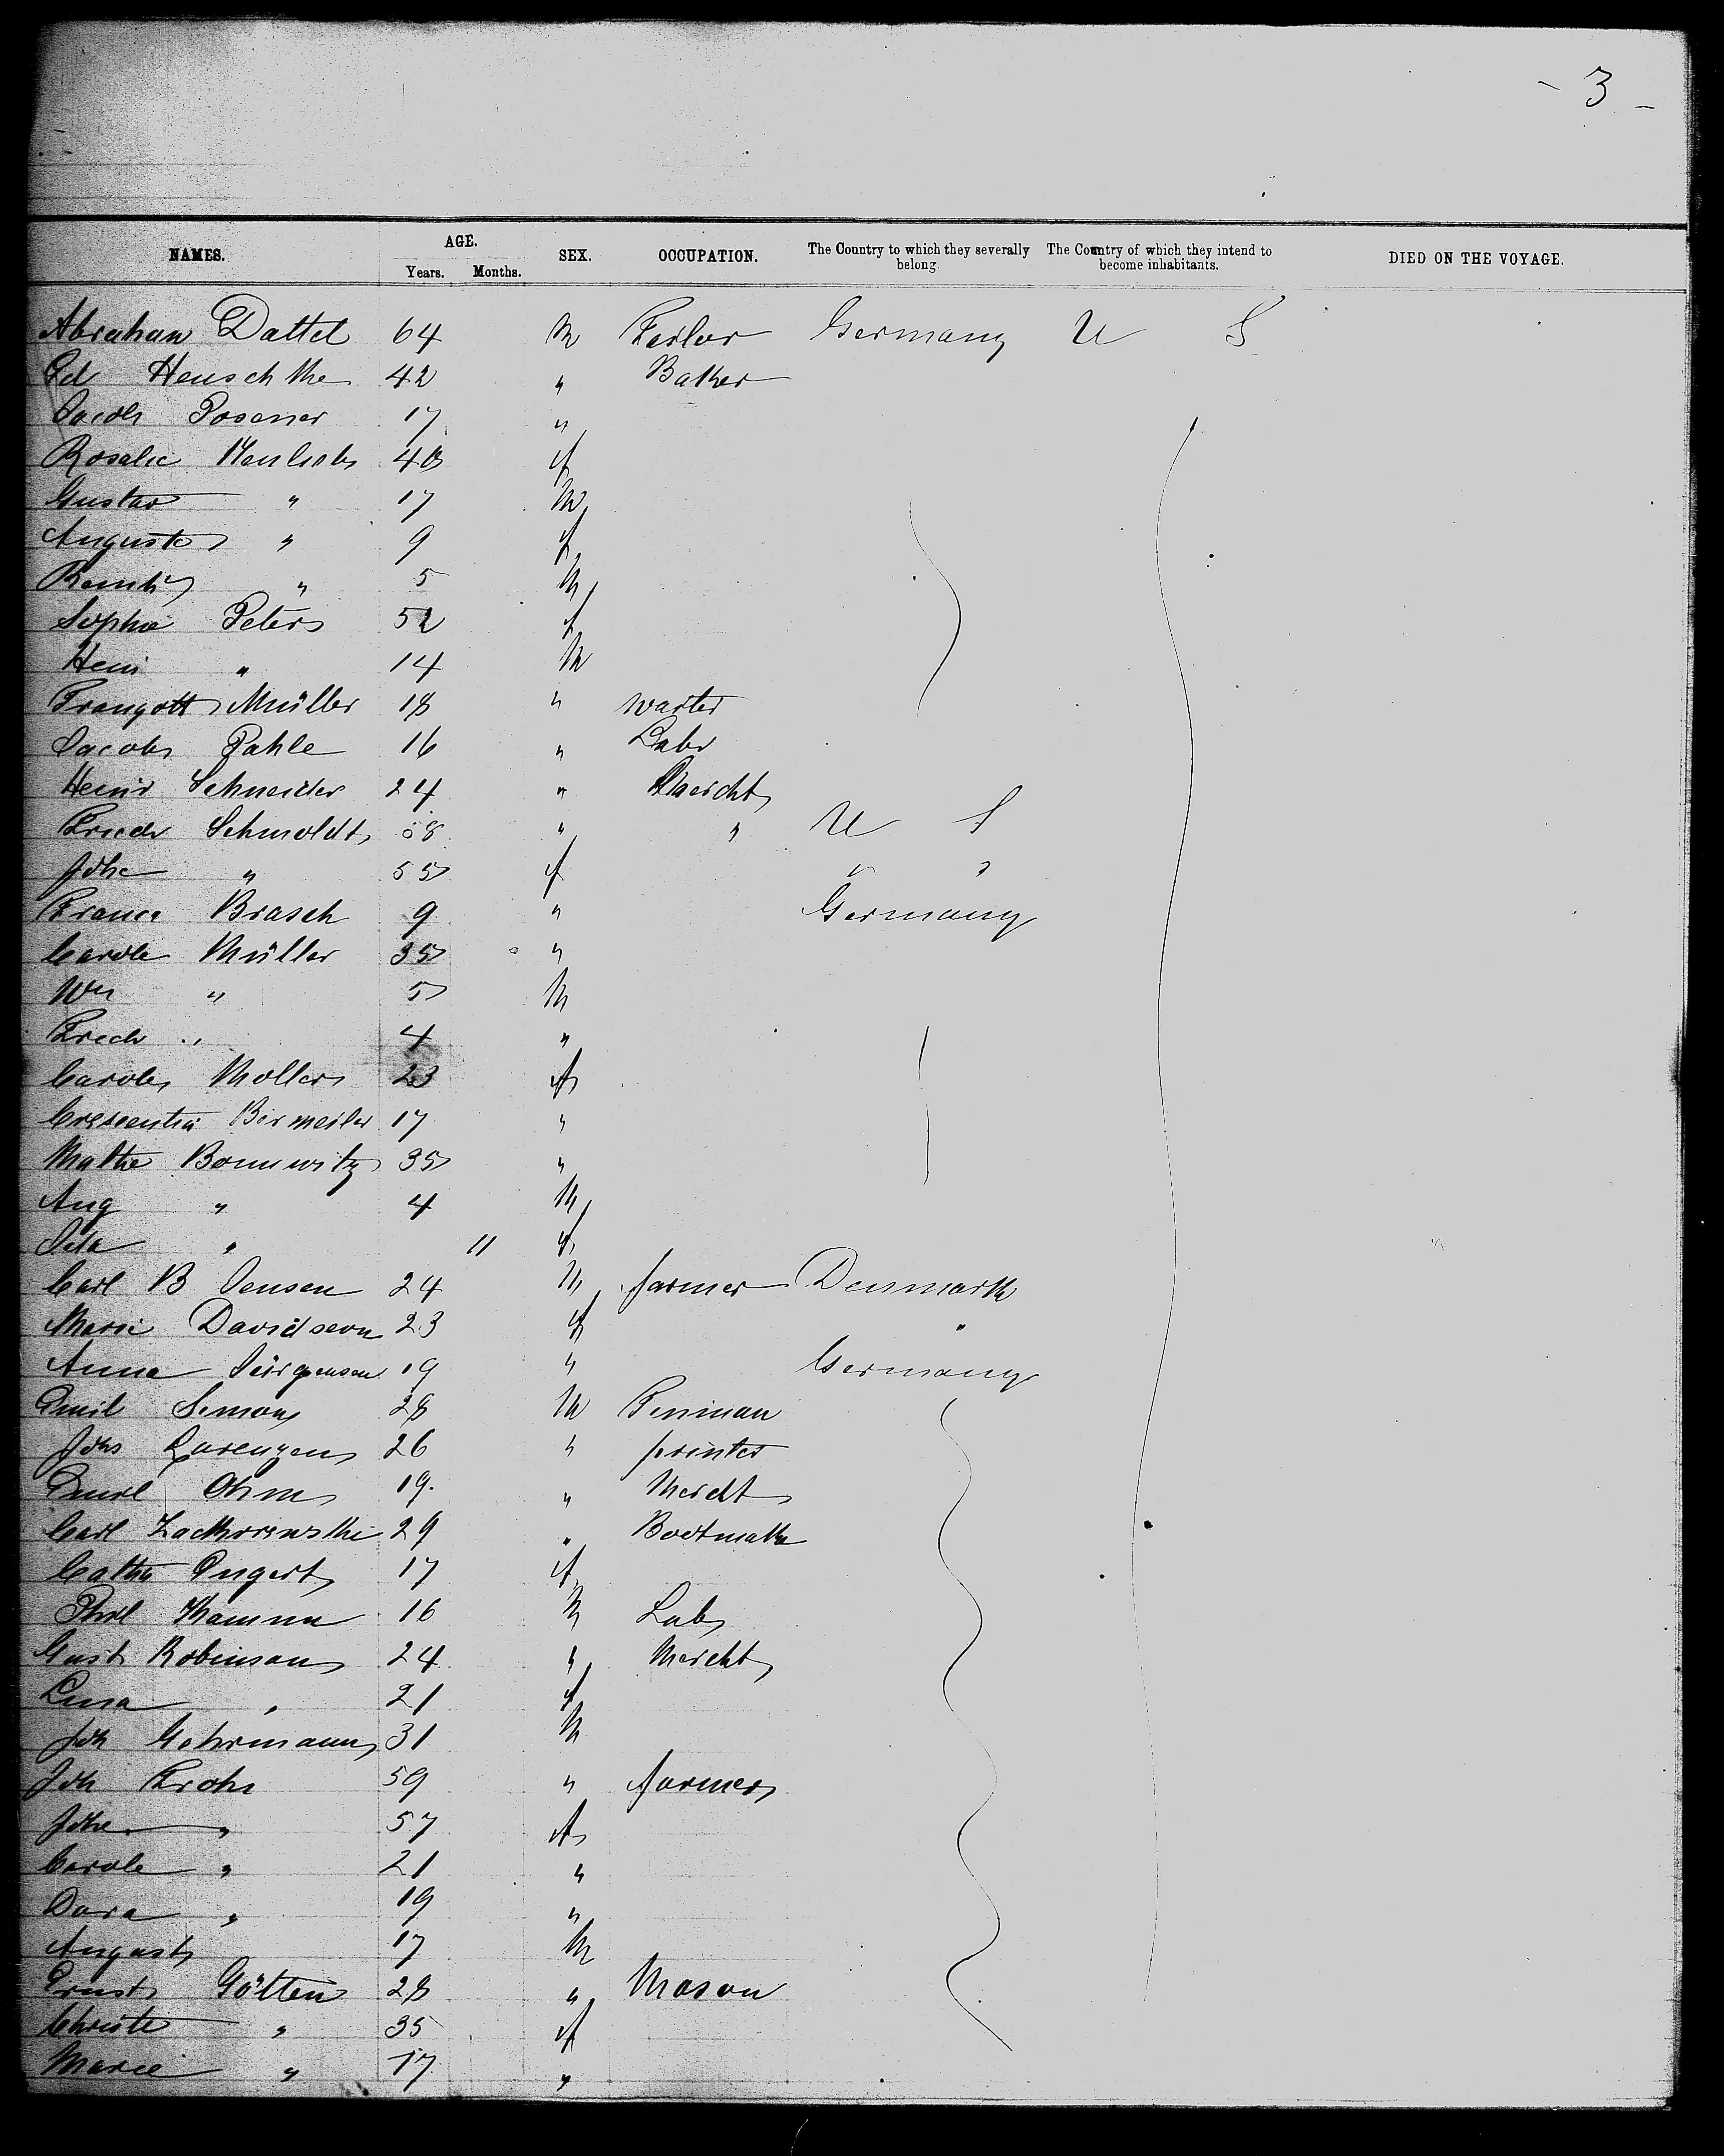 - 3 -
NAMES. AGE. Years. Months. SEX. OCCUPATION. The Country to which they severally belong. The Country of which they intend to become inhabitants. DIED ON THE VOYAGE.
Abraham Dattel 64 M Germany U S
Ed 42 " Baker
Jacob Posener 17 "
Rosalie 48 f
Gustav " 17 M
Auguste " 9 f
" 5 M
Sophie Peters 52 f
Hein " 14 M
Traugott Müller 18 "
Jacob Pahle 16 " Labr
Heinr Schneider 24 " Mercht
Friedr Schmoldt 58 " " U S
Johe " 55 f " "
Brasch 9 " Germany
Carole Müller 35 "
Wm " 5 M
Friedr " 4 "
Carole Mollers 23 f
Crescentia 17 "
Mathe 35 "
Aug " 4 M
Ida " 11 f
Carl B Jensen 24 M farmer Denmark
Marie Davidseon 23 f "
Anna Jürgensen 19 " Germany
Emil Simons 28 M
Johs Lorenzen 26 " printer
Emil Ohm 19 " Mercht
Carl 29 "
Catha Engert 17 f
Phil 16 M Lab
Gust Robinson 24 " Mercht
" 21 f
Joh Gehrmann 31 M
Joh Frohs 59 " farmer
Johe " 57 f
Carole " 21 "
Dora " 19 "
August 17 M
Ernst Götten 28 " Mason
Christe " 35 f
Marie " 17 "